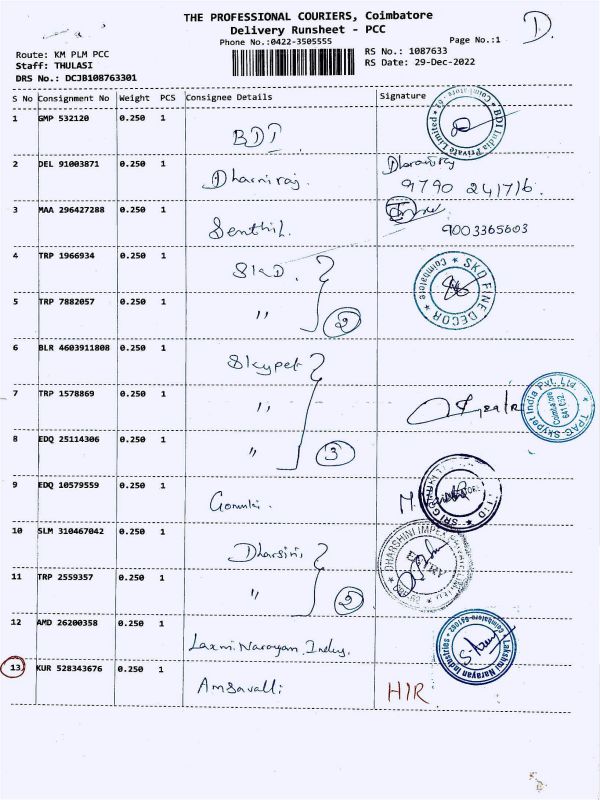 THE PROFESSIONAL COURIERS, Coimbatore
Delivery Runsheet - PCC
D.
Phone No.:0422-3505555
Page No.:1
Route: KM PLM PCC
RS No.: 1087633
Staff: THULASI
RS Date: 29-Dec-2022
DRS No.: DCJB108763301
S No Consignment No Weight PCS Consignee Details Signature
1 GMP 532120 0.250 1 BDI
BDI India Private Limited
2 DEL 91003871 0.250 1 Dharniraj.
Dharaniraj
9790 241716.
3 MAA 296427288 0.250 1 Senthil.
9003365603
4 TRP 1966934 0.250 1 SKD.
SKD FINE DECOR ★ Coimbatore ★
5 TRP 7882057 0.250 1 "
2
6 BLR 4603911808 0.250 1 Skypet
7 TRP 1578869 0.250 1 "
TPAC-Skypet India Pvt. Ltd.
Coimbatore
641 032
8 EDQ 25114306 0.250 1 "
3
9 EDQ 10579559 0.250 1
SRI GOMUKI
10 SLM 310467042 0.250 1 Dharsini
DHARSHINI IMPEX PRIVATE
ENTRY
11 TRP 2559357 0.250 1 "
2
12 AMD 26200358 0.250 1 Laxmi Narayan Indus.
Lakshmi Narayan Industries
13 KUR 528343676 0.250 1 Amsavalli
HIR